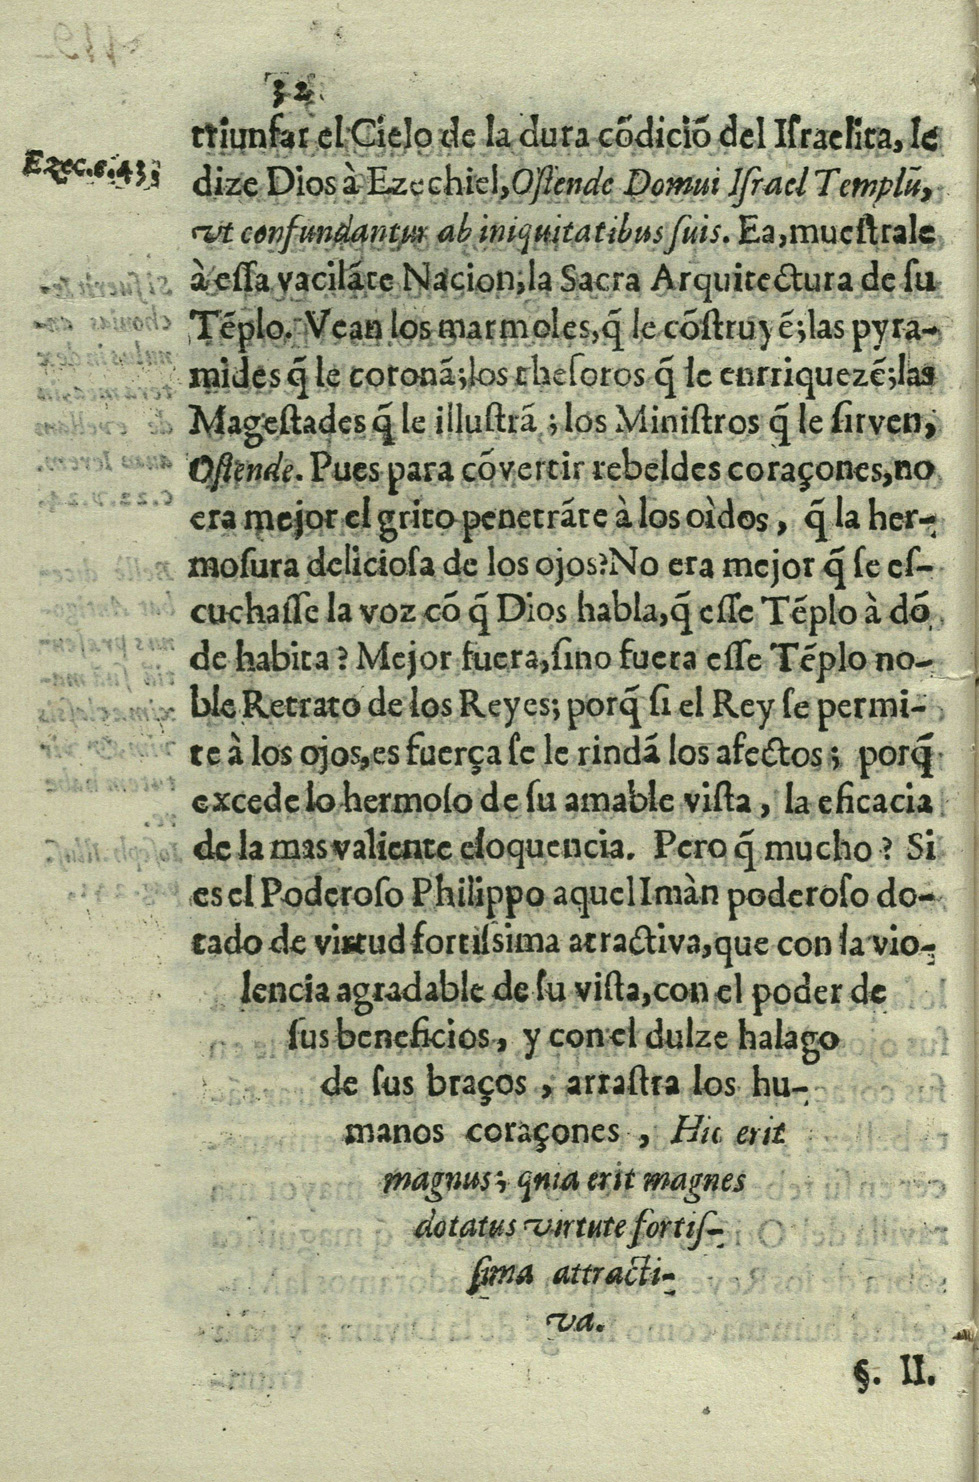 32
triunfar el Cielo de la dura cõdiciõ del Iſraelita, le
Ezec.c.43;
dize Dios à Ezechiel, Oſtende Domui Iſrael Templũ,
vt confundantur ab iniquitatibus ſuis. Ea, mueſtrale
à eſſa vacilãte Nacion, la Sacra Arquitectura de ſu
Tẽplo. Vean los marmoles, q̃ le cõſtruyẽ; las pyra-
mides q̃ le coronã; los theſoros q̃ le enrriquezẽ; las
Mageſtades q̃ le illuſtrã; los Miniſtros q̃ le ſirven,
Oſtende. Pues para cõvertir rebeldes coraçones, no
era mejor el grito penetrãte à los oìdos, q̃ la her-
moſura delicioſa de los ojos? No era mejor q̃ ſe eſ-
cuchaſſe la voz cõ q̃ Dios habla, q̃ eſſe Tẽplo à dõ
de habita? Mejor fuera, ſino fuera eſſe Tẽplo no-
ble Retrato de los Reyes; porq̃ ſi el Rey ſe permi-
te à los ojos, es fuerça ſe le rindã los afectos; porq̃
excede lo hermoſo de ſu amable viſta, la eficacia
de la mas valiente eloquencia. Pero q̃ mucho? Si
es el Poderoſo Philippo aquel Imàn poderoſo do-
tado de virtud fortiſsima atractiva, que con la vio-
lencia agradable de ſu viſta, con el poder de
ſus beneficios, y con el dulze halago
de ſus braços, arraſtra los hu-
manos coraçones, Hic erit
magnus; qnia erit magnes
dotatus virtute fortiſ-
ſima attracti-
va.
§. II.